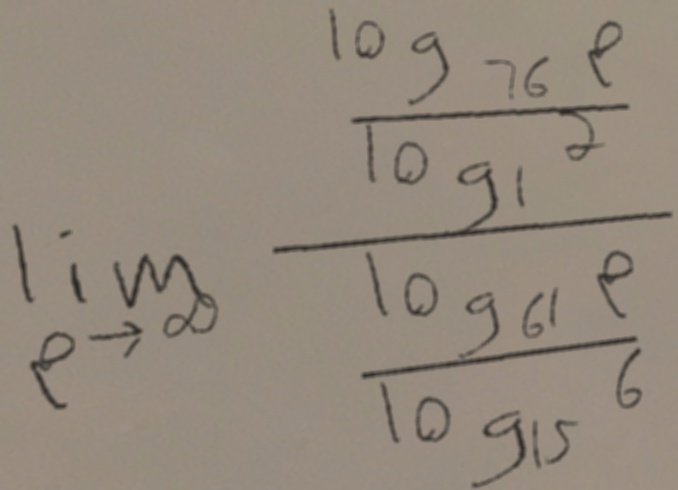 \lim_{p \to \infty} \frac{\frac{\log_{76} p}{\log_1 2}}{\frac{\log_{61} p}{\log_{15} 6}}